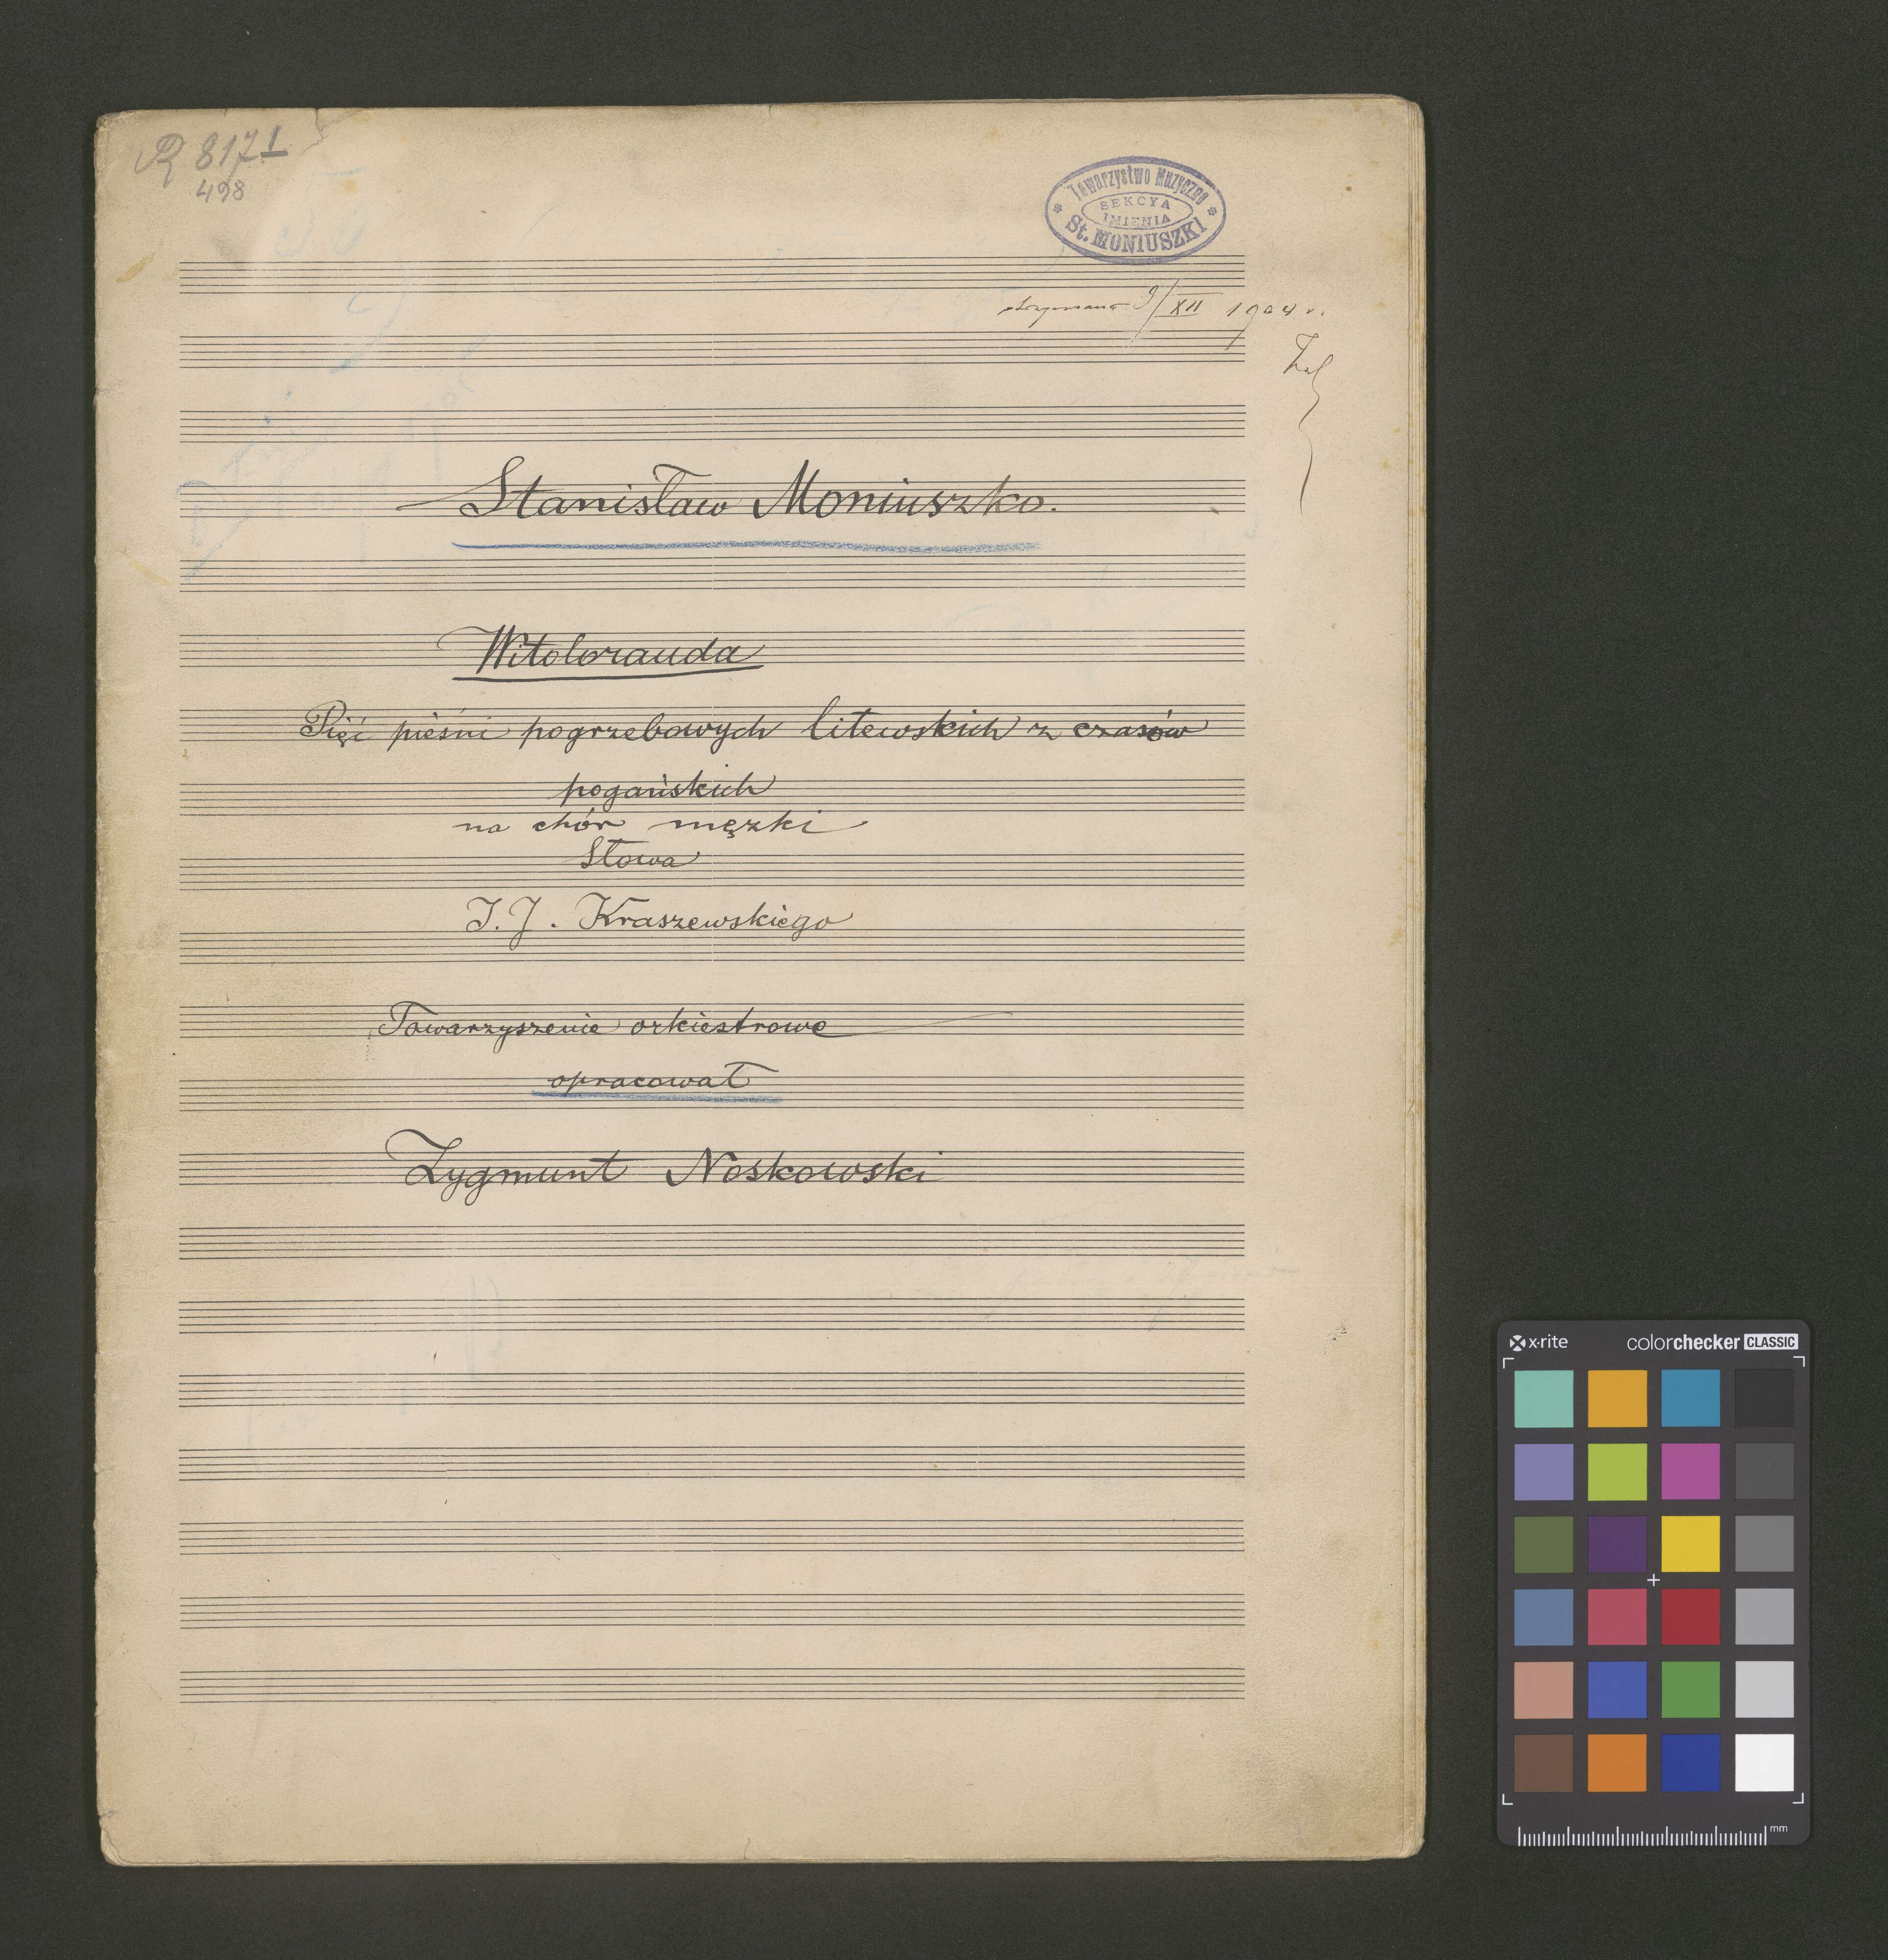 R 817 I
498
Towarzystwo Muzyczne
SEKCYA
IMIENIA
St. MONIUSZKI
otrzymano 9/XII 1904 r.
Stanisław Moniuszko.
Witolorauda
Pięć pieśni pogrzebowych litewskich z czasów
pogańskich
na chór męzki
Słowa
J. J. Kraszewskiego
Towarzyszenie orkiestrowe
opracował
Zygmunt Noskowski
x·rite colorchecker CLASSIC
mm